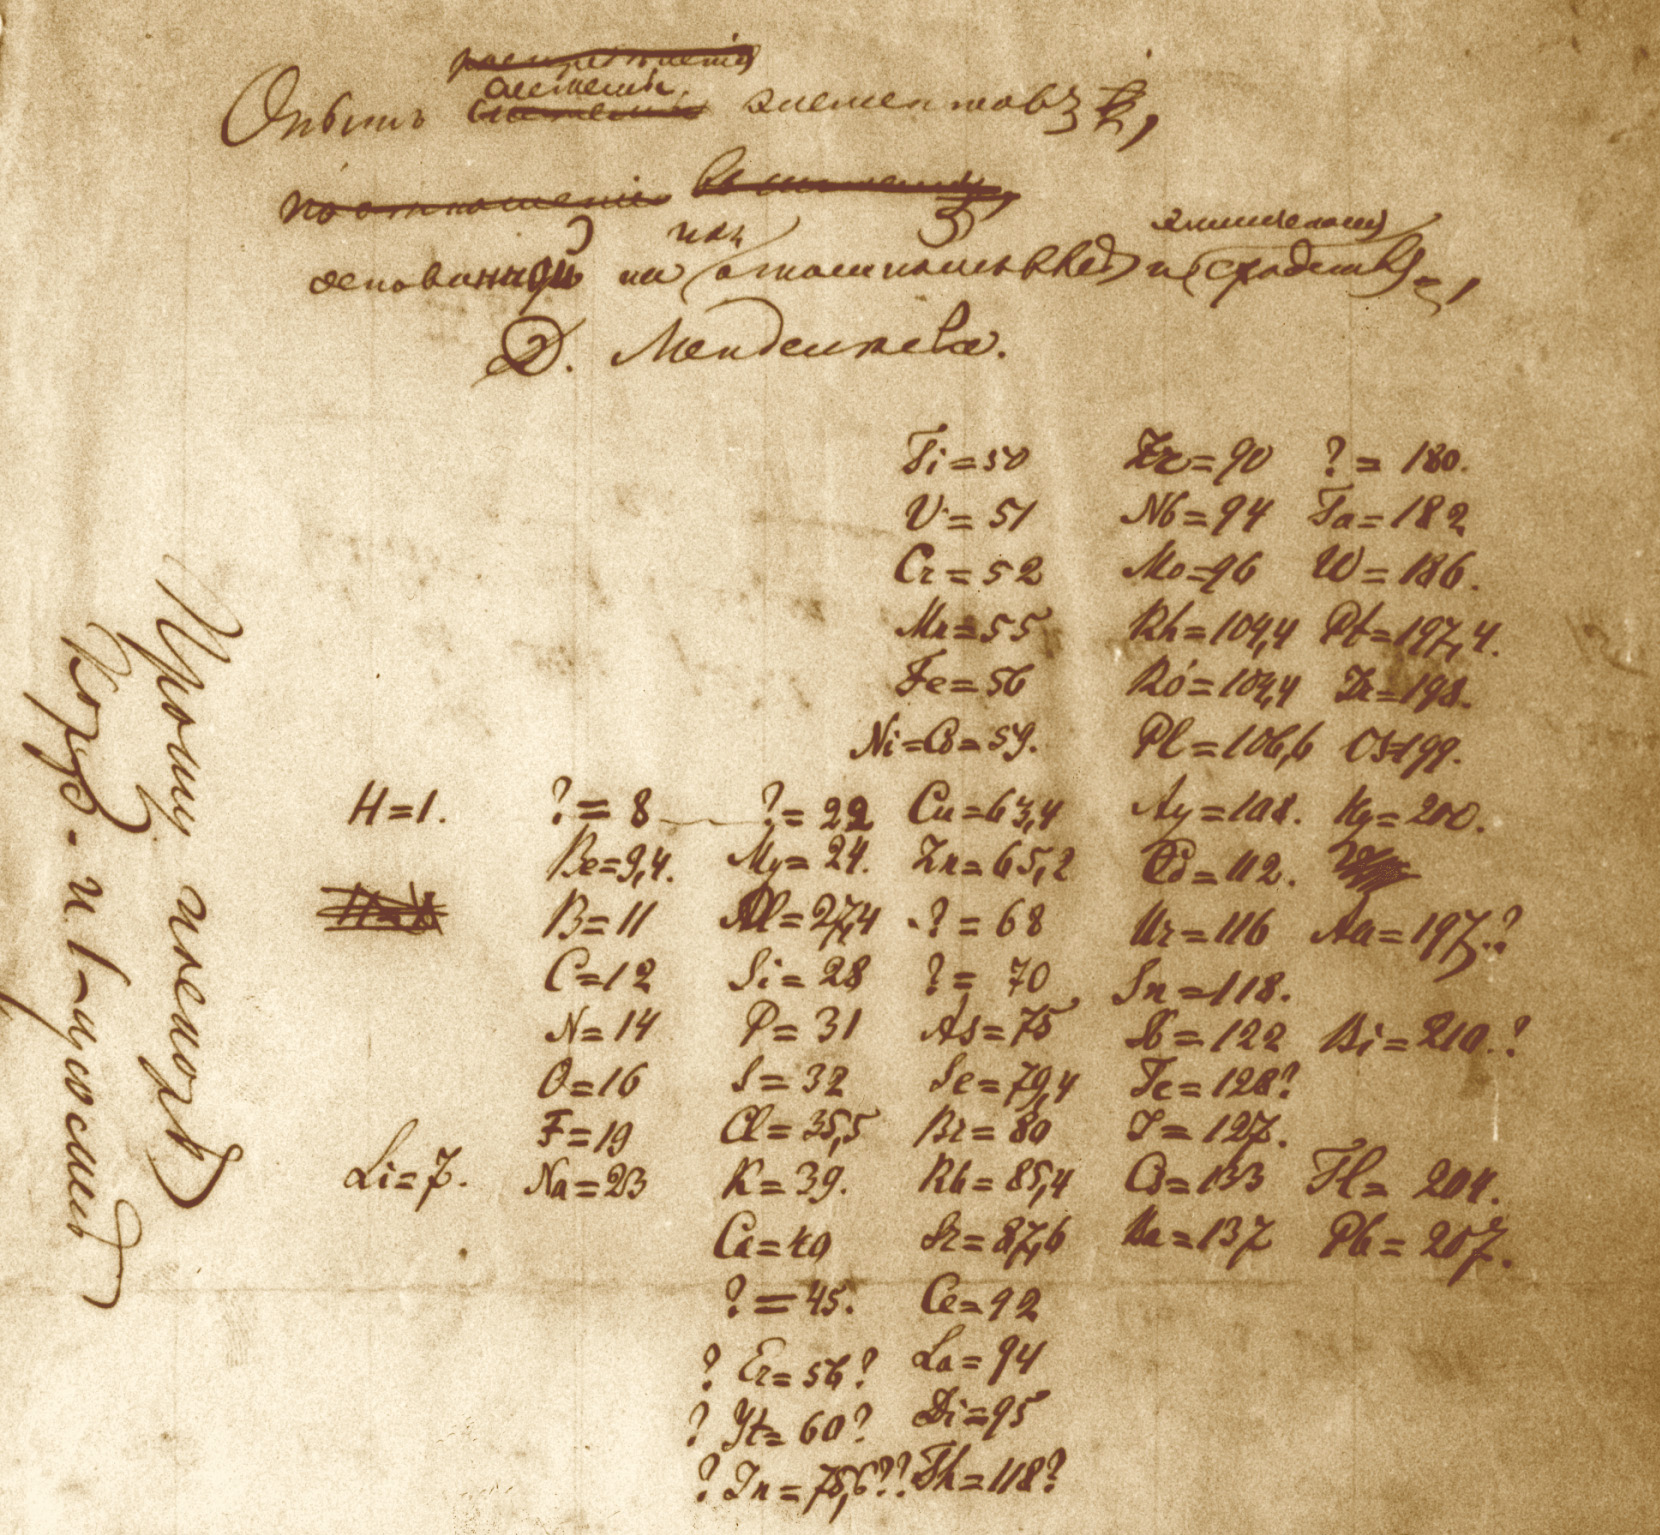 Опытъ системы элементовъ,
основанной на ихъ атомномъ вѣсѣ и химическомъ сходствѣ,
Д. Менделѣева.
Ti=50 Zr=90 ?=180.
V=51 Nb=94 Ta=182
Cr=52 Mo=96 W=186.
Mn=55 Rh=104,4 Pt=197,4.
Fe=56 Ro=104,4 Ir=198.
Ni=Co=59. Pl=106,6 Os=199.
H=1. ?=8 ?=22 Cu=63,4 Ag=108. Hg=200.
Be=9,4. Mg=24. Zn=65,2 Cd=112.
B=11 Al=27,4 ?=68 Ur=116 Au=197.?
C=12 Si=28 ?=70 Sn=118.
N=14 P=31 As=75 Sb=122 Bi=210.?
O=16 S=32 Se=79,4 Te=128?
F=19 Cl=35,5 Br=80 J=127.
Li=7. Na=23 K=39. Rb=85,4 Cs=133 Tl=204.
Ca=40 Sr=87,6 Ba=137 Pb=207.
?=45. Ce=92
? Er=56? La=94
? Yt=60? Di=95
? In=75,6?? Th=118?
Прошу